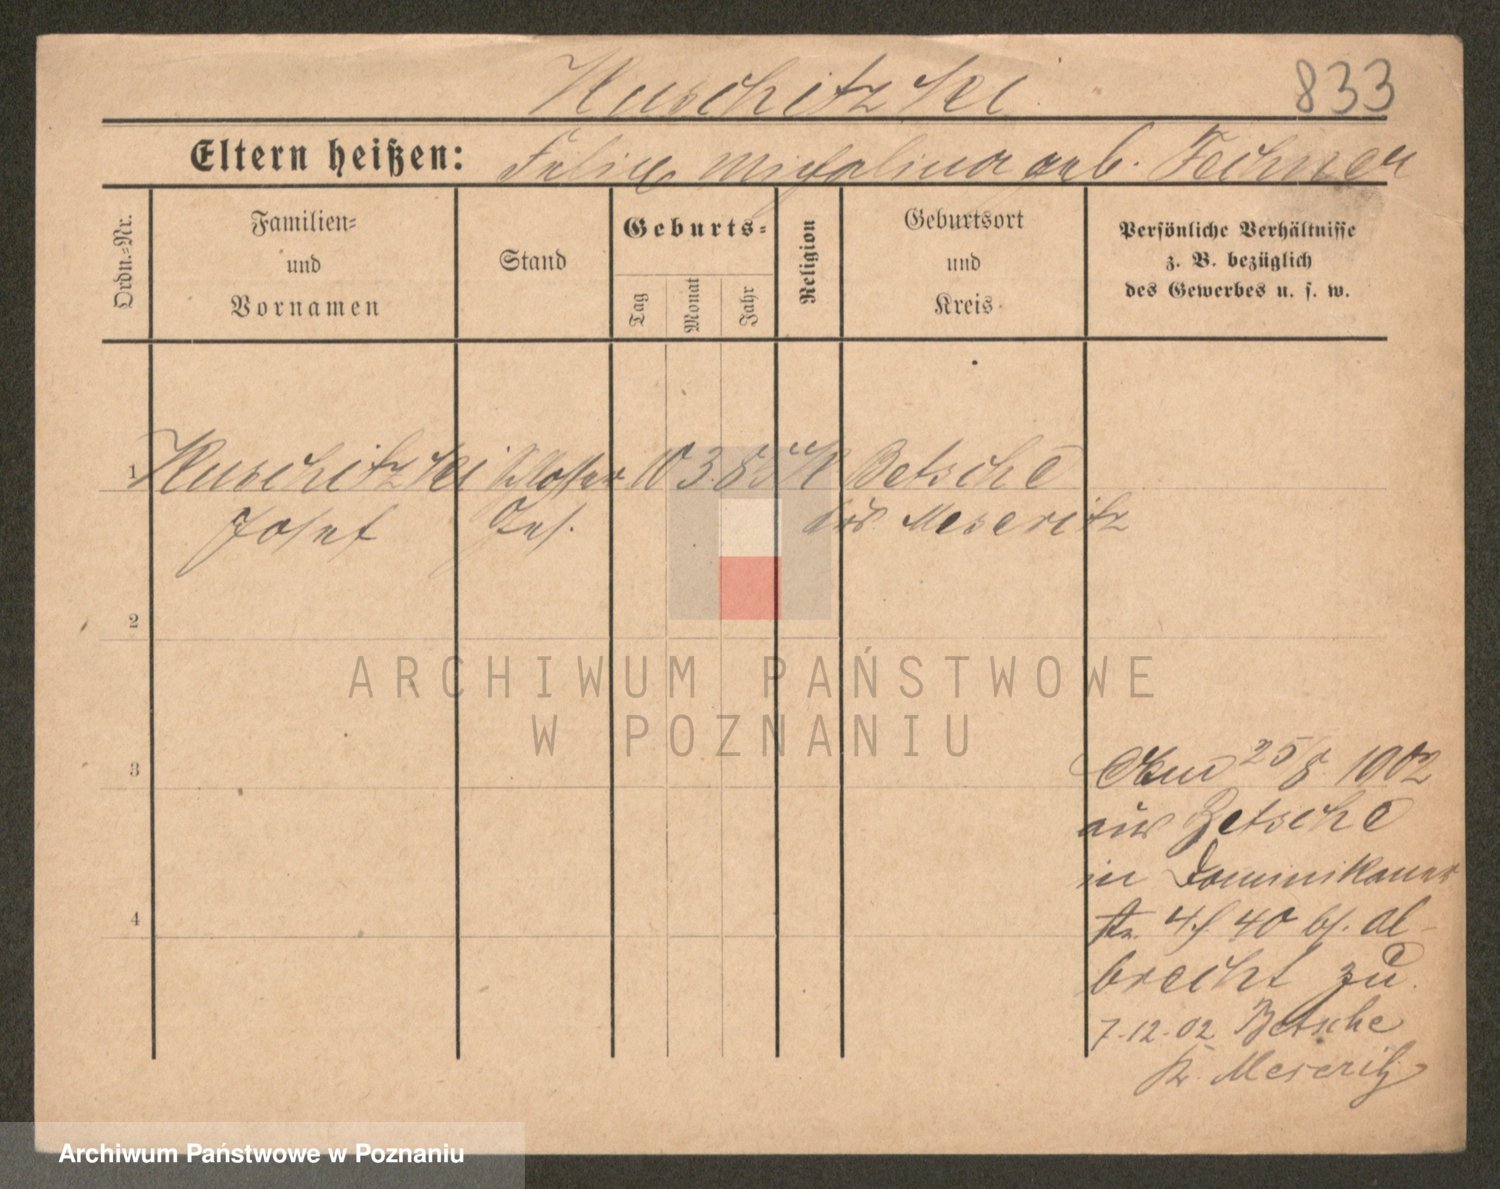 Kuschitzki
833
Eltern heißen: Felix Michalina geb. Fechner
Ordn.=Nr.
Familien=
und
Vornamen
Stand
Geburts=
Tag
Monat
Jahr
Religion
Geburtsort
und
Kreis
Persönliche Verhältnisse
z. B. bezüglich
des Gewerbes u. s. w.
1 Kuschitzki Schlosser 10 3 85 K Betsche
Josef Ges. Krs. Meseritz
2
3
4
ARCHIWUM PAŃSTWOWE
W POZNANIU
25/8 1902
aus Betsche
in Dominikaner
str. 40 bs. Al-
brecht zu
7.12.02 Betsche
Kr. Meseritz
Archiwum Państwowe w Poznaniu